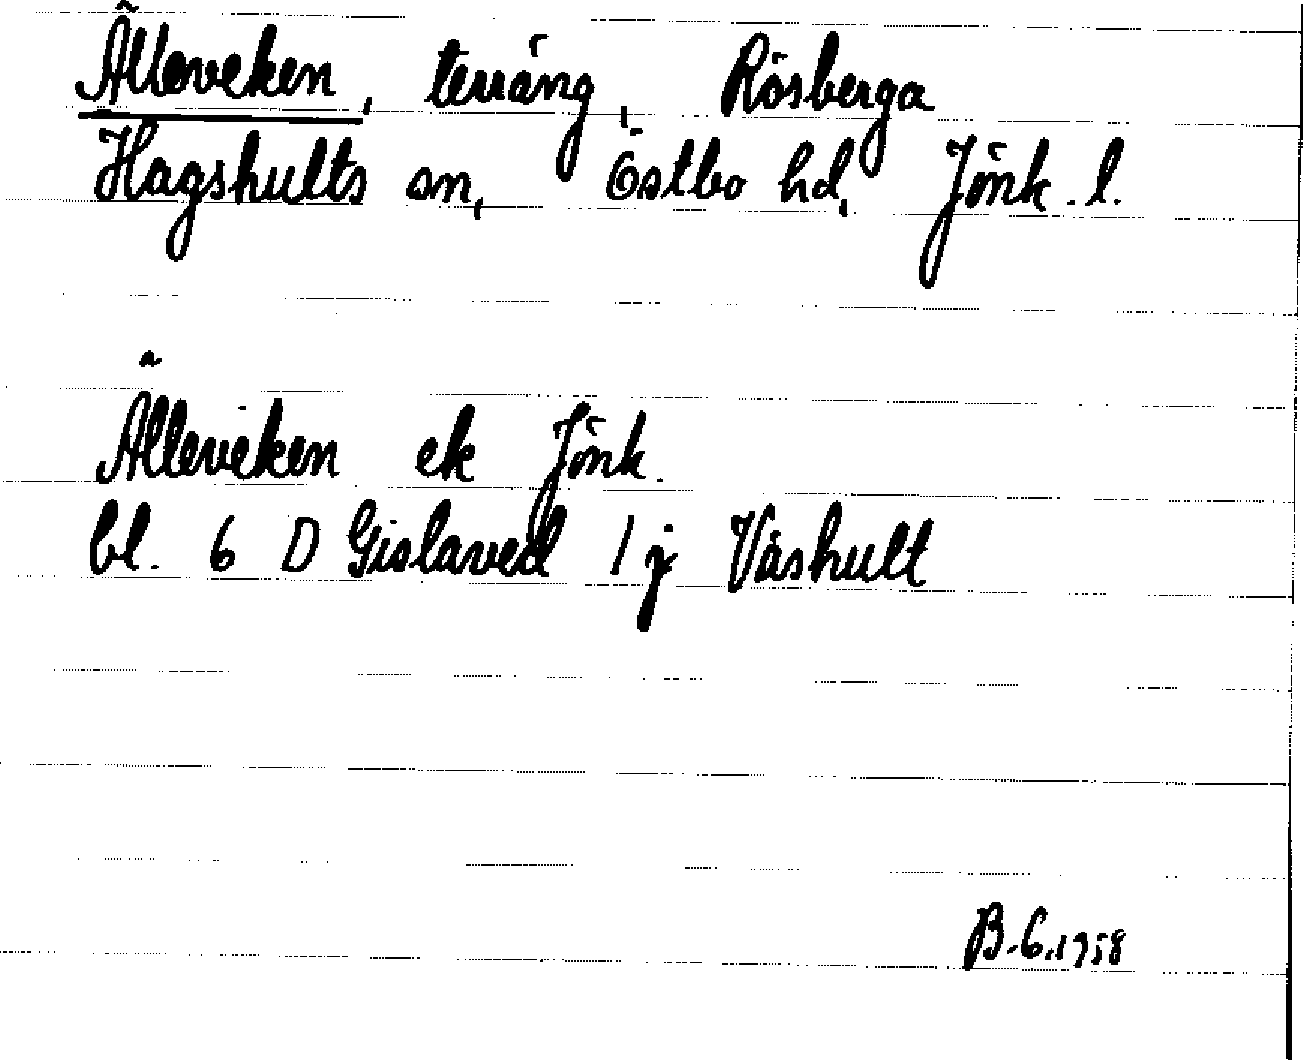 Älleveken, terräng, Rösberga
Hagshults sn, Östbo hd, Jönk. l.
Älleveken ek Jönk.
bl. 6 D Gislaved 1 j Våshult
B.G. 1958